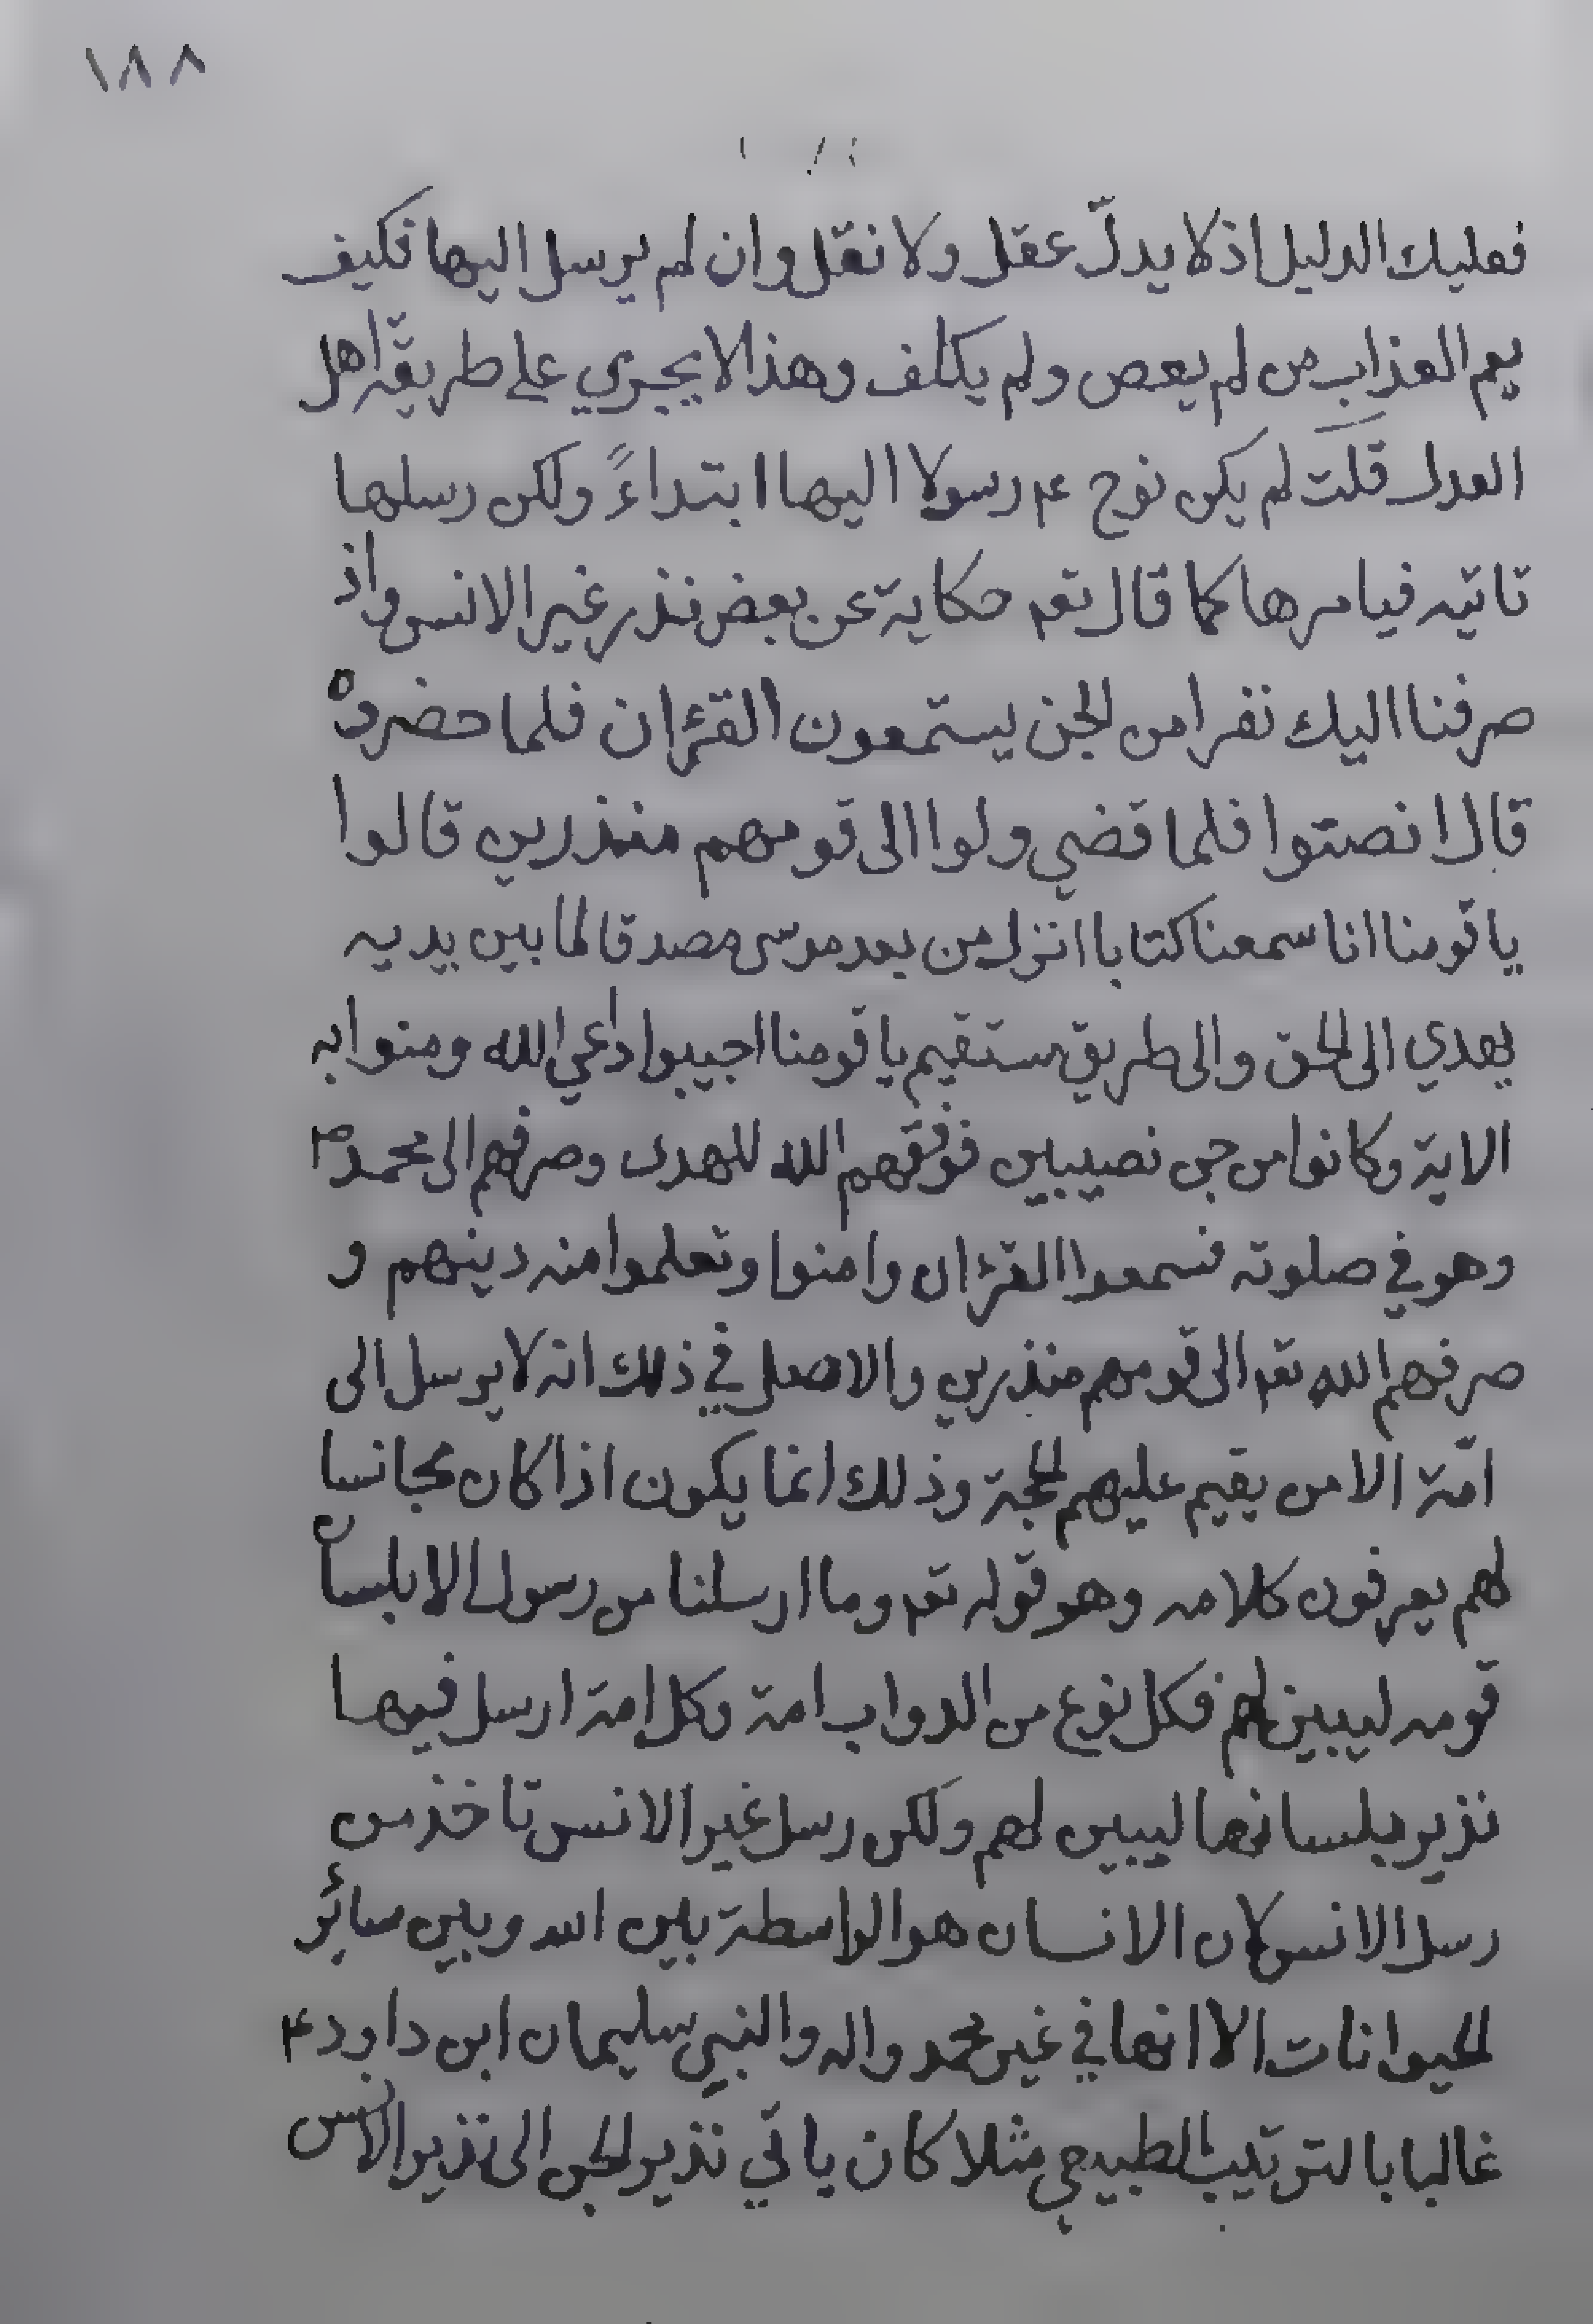 ١٨٨
فعليك الدليل اذ لا يدلّ عقل ولا نقل وان لم يرسل اليها فكيف
يعم العذاب من لم يعص ولم يكلف وهذا لا يجري على طريقة اهل
العدل قلت لم يكن نوح ع رسولا اليها ابتداءً ولكن رسلها
تاتيه فيامرها كما قال تعـ حكاية عن بعض نذر غير الانس واذ
صرفنا اليك نفرا من الجن يستمعون القرءان فلما حضروه
قال انصتوا فلما قضي ولوا الى قومهم منذرين قالوا
يا قومنا انا سمعنا كتابا انزل من بعد موسى مصدقا لما بين يديه
يهدي الى الحق والى طريق مستقيم يا قومنا اجيبوا داعي الله ومنوا به
الاية وكانوا من جن نصيبين فوفقهم الله للهدى وصرفهم الى محمد ص
وهو في صلوته فسمعوا القرءان وامنوا وتعلموا منه دينهم و
صرفهم الله تعـ الى قومهم منذرين والاصل في ذلك انه لا يرسل الى
امّة الا من يقيم عليهم الحجة وذلك انما يكون اذا كان مجانسا
لهم يعرفون كلامه وهو قوله تعـ وما ارسلنا من رسول الا بلسان
قومه ليبين لهم فكل نوع من الدواب امة وكل امة ارسل فيها
نذير بلسانها ليبين لهم ولكن رسل غير الانس تاخذ من
رسل الانس لان الانسان هو الواسطة بين الله وبين سائر
الحيوانات الا انها في غير محمد واله والنبي سليمان ابن داود ع
غالبا بالترتيب الطبيعي مثلا كان ياتي نذير الجن الى نذير الانس